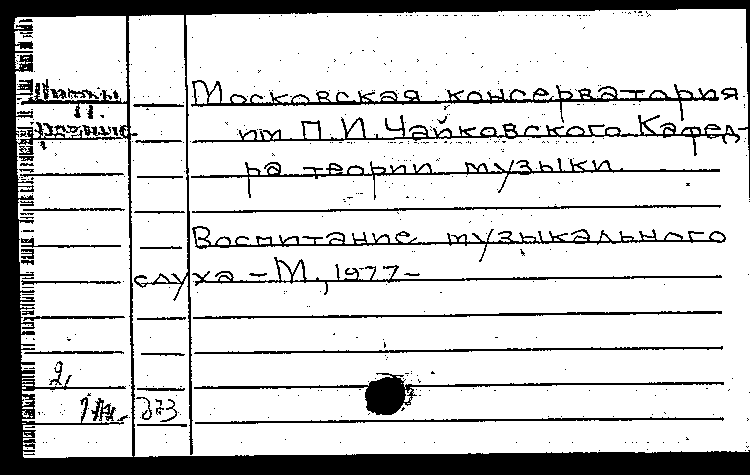 Московская консерватория
им П.И.Чайковского Кафед-
ра теории музыки.
Воспитание музыкального
слуха – М., 1977 –
2,